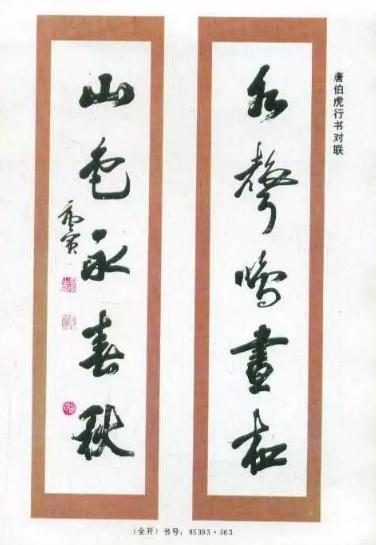 唐伯虎行书对联
水聲鳴晝夜
山色永春秋
唐寅
（全开）书号：85393·563